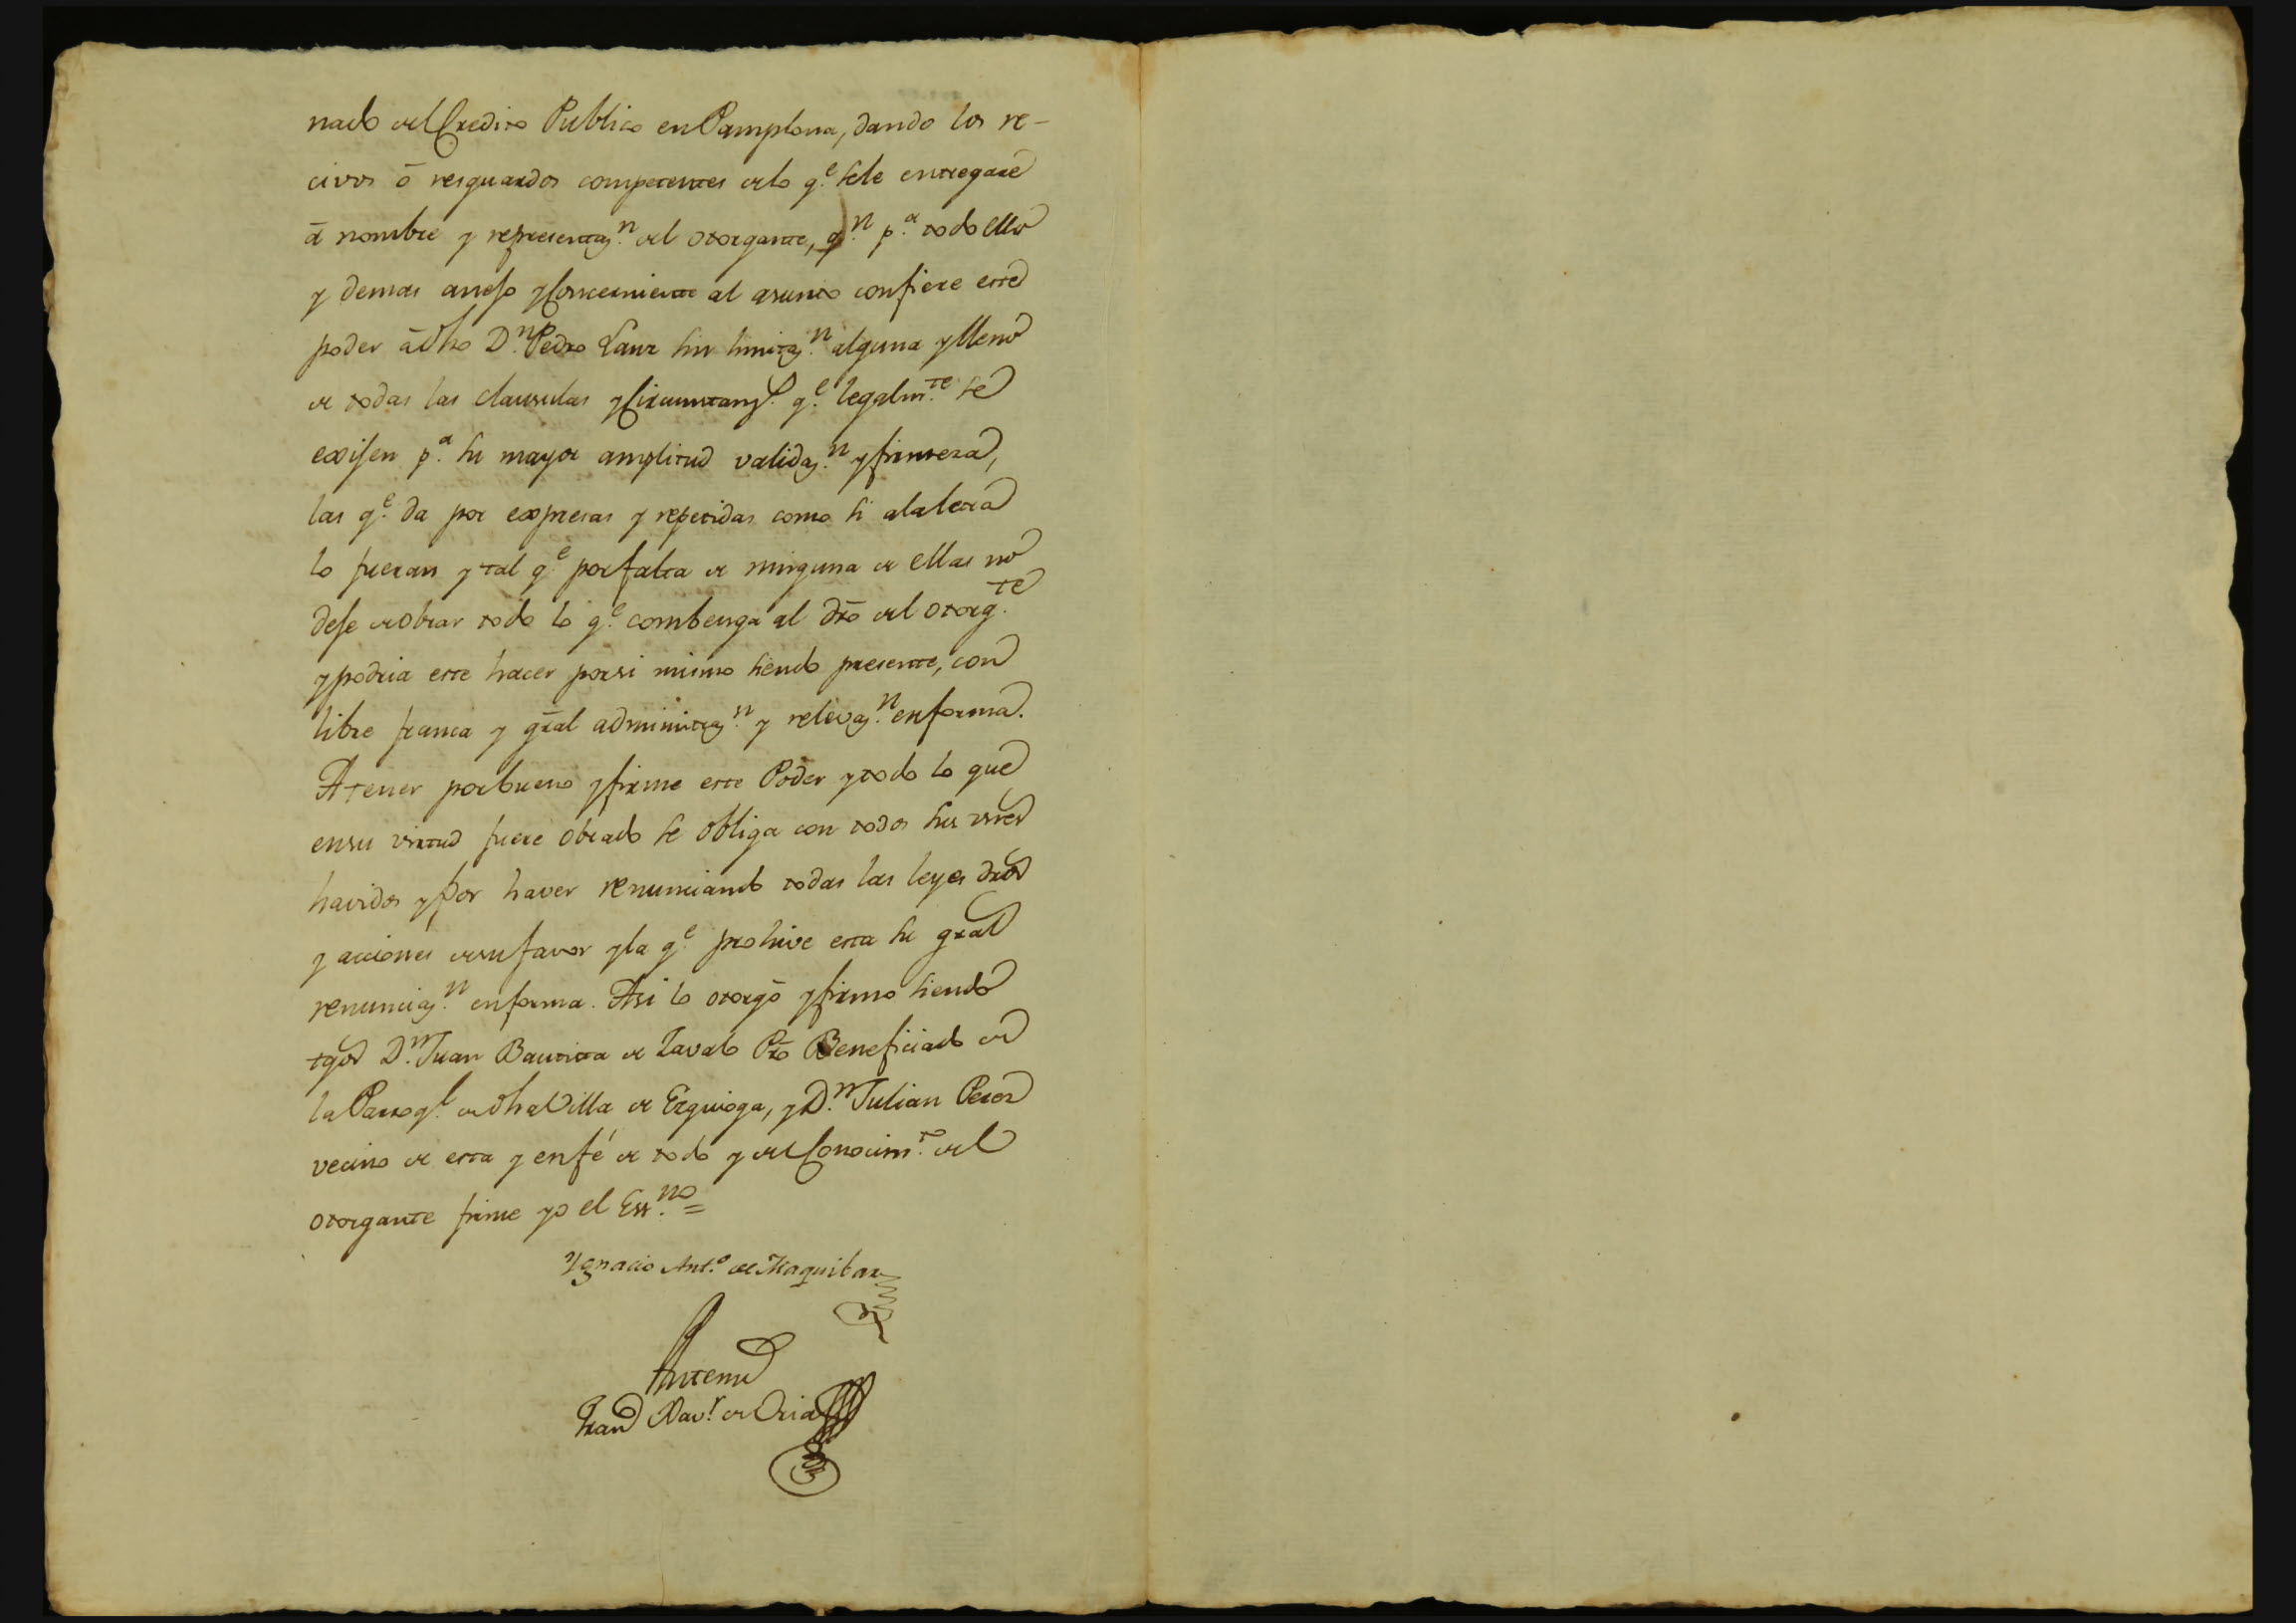 nado del Credito Publico en Pamplona, dando los re-
civos ó resguardos competentes de lo q.e se le entregare
á nombre y representaz.n del otorgante, q.n p.a todo ello
y demas anejo y concerniente al asunto confiere este
poder á dho D.n Pedro Sanz sin limitaz.n alguna y lleno
de todas las clausulas y circunstanz.s q.e legalm.te se
exijen p.a su mayor amplitud validaz.n y firmeza,
las q.e da por expresas y repetidas como si a la letra
lo fueran y tal q.e por falta de ninguna de ellas no
deje de obrar todo lo q.e combenga al dro del otorg.te
y podria este hacer por si mismo siendo presente, con
libre franca y gral administraz.n y relevaz.n en forma.
A tener por bueno y firme este Poder y todo lo que
en su virtud fuere obrado se obliga con todos sus vnes
havidos y por haver renunciando todas las leyes dros
y acciones de su favor y la q.e prohive esta su gral
renunciaz.n en forma. Asi lo otorgó y firmo siendo
tgos D.n Juan Bautista de Zavalo Pro Beneficiado de
la Parroq.l de dha Villa de Ezquioga, y D.n Julian Perez
vecino de esta y en fé de todo y del Conocim.to del
otorgante firme yo el Ess.no =
Ygnacio Ant.o de Ytaquibar
Antemi
Fran Xav.r de Oria